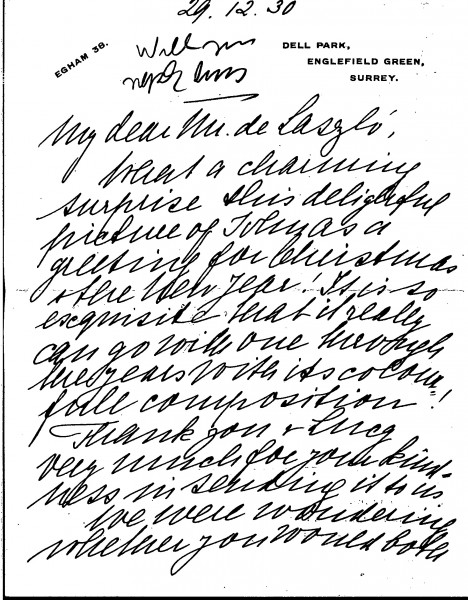 29.12.30
EGHAM 38.
Will you
reply
DELL PARK,
ENGLEFIELD GREEN,
SURREY.
My dear Mr. de László,
What a charming
surprise this delightful
picture of Johny as a
greeting for Christmas
+ the New Year! It is so
exquisite that it really
can go with one through
the years with its colour-
full composition!
Thank you + Lucy
very much for your kind-
ness in sending it to us
We were wondering
whether you would both